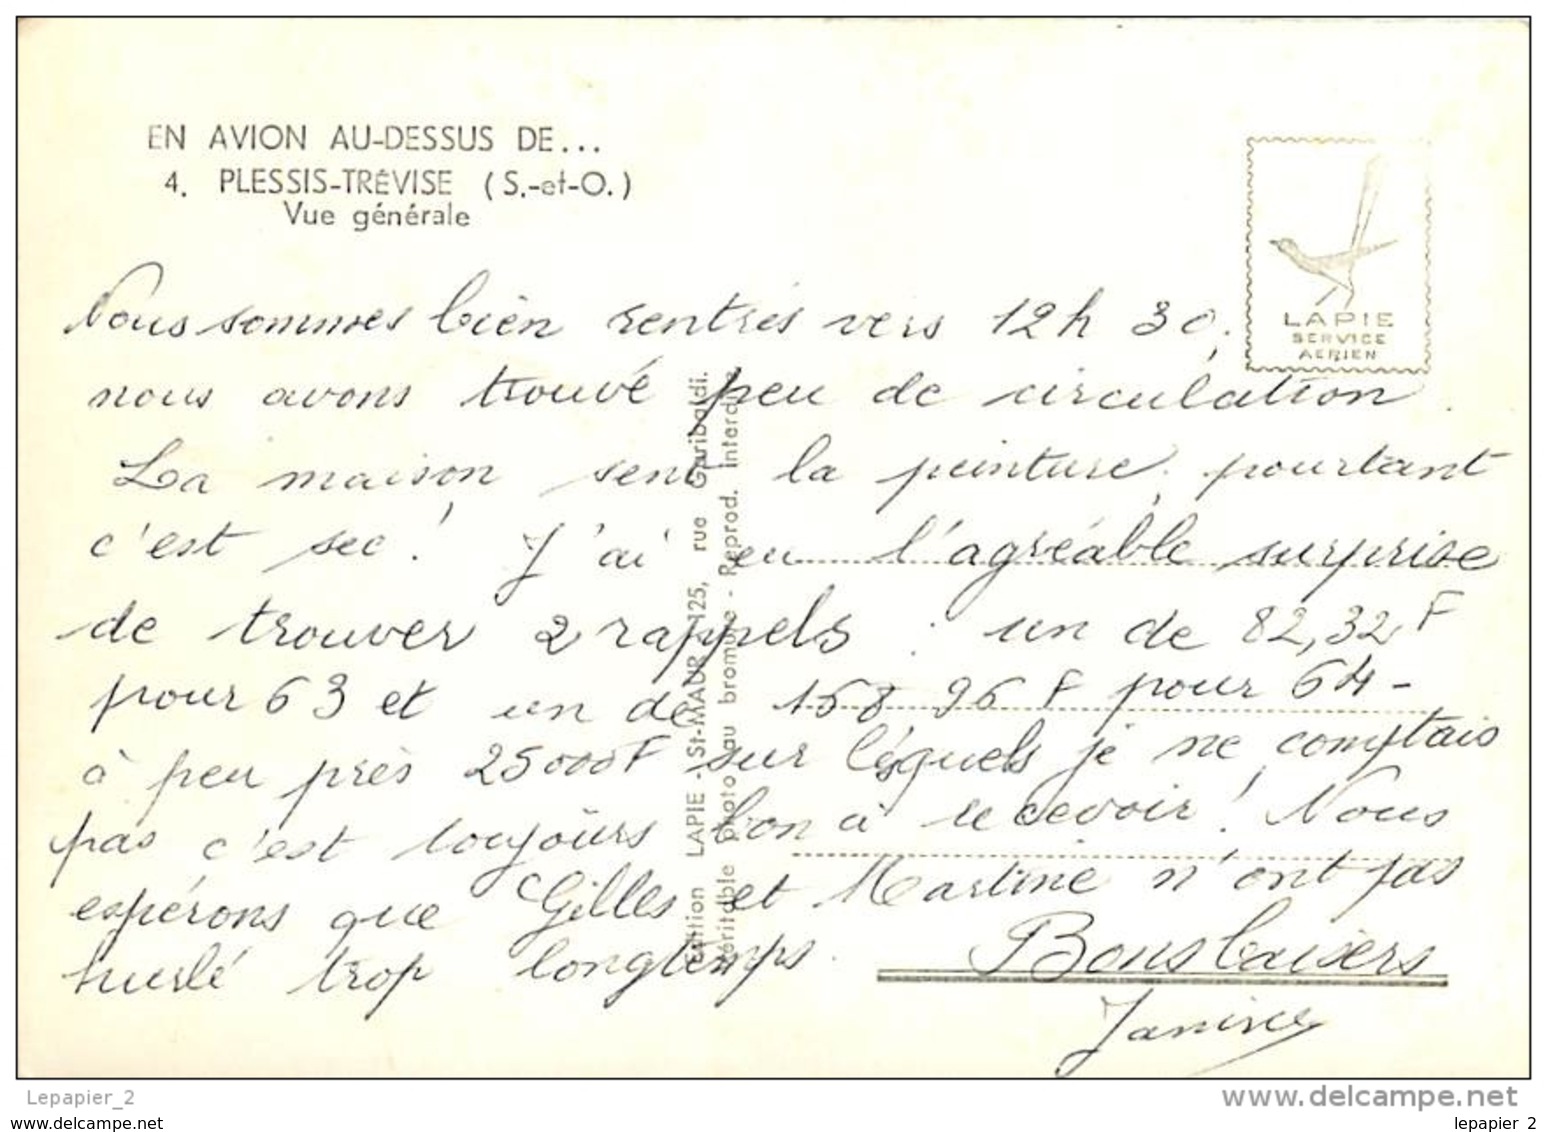 EN AVION AU-DESSUS DE...
4. PLESSIS-TRÉVISE (S.-et-O.)
Vue générale
LAPIE
SERVICE
AERIEN
Nous sommes bien rentrés vers 12h 30,
nous avons trouvé peu de circulation.
La maison sent la peinture, pourtant
c'est sec! J'ai eu l'agréable surprise
de trouver 2 rappels : un de 82,32 F
pour 63 et un de 158 96 F pour 64 -
à peu près 25000F sur lesquels je ne comptais
pas, c'est toujours bon à recevoir! Nous
espérons que Gilles et Martine n'ont pas
hurlé trop longtemps.
Bons baisers
Janine
Edition LAPIE - St-MAUR 125, rue Garibaldi.
Véritable photo au bromure - Reprod. Interdite
Lepapier_2
www.delcampe.net
www.delcampe.net
lepapier_2